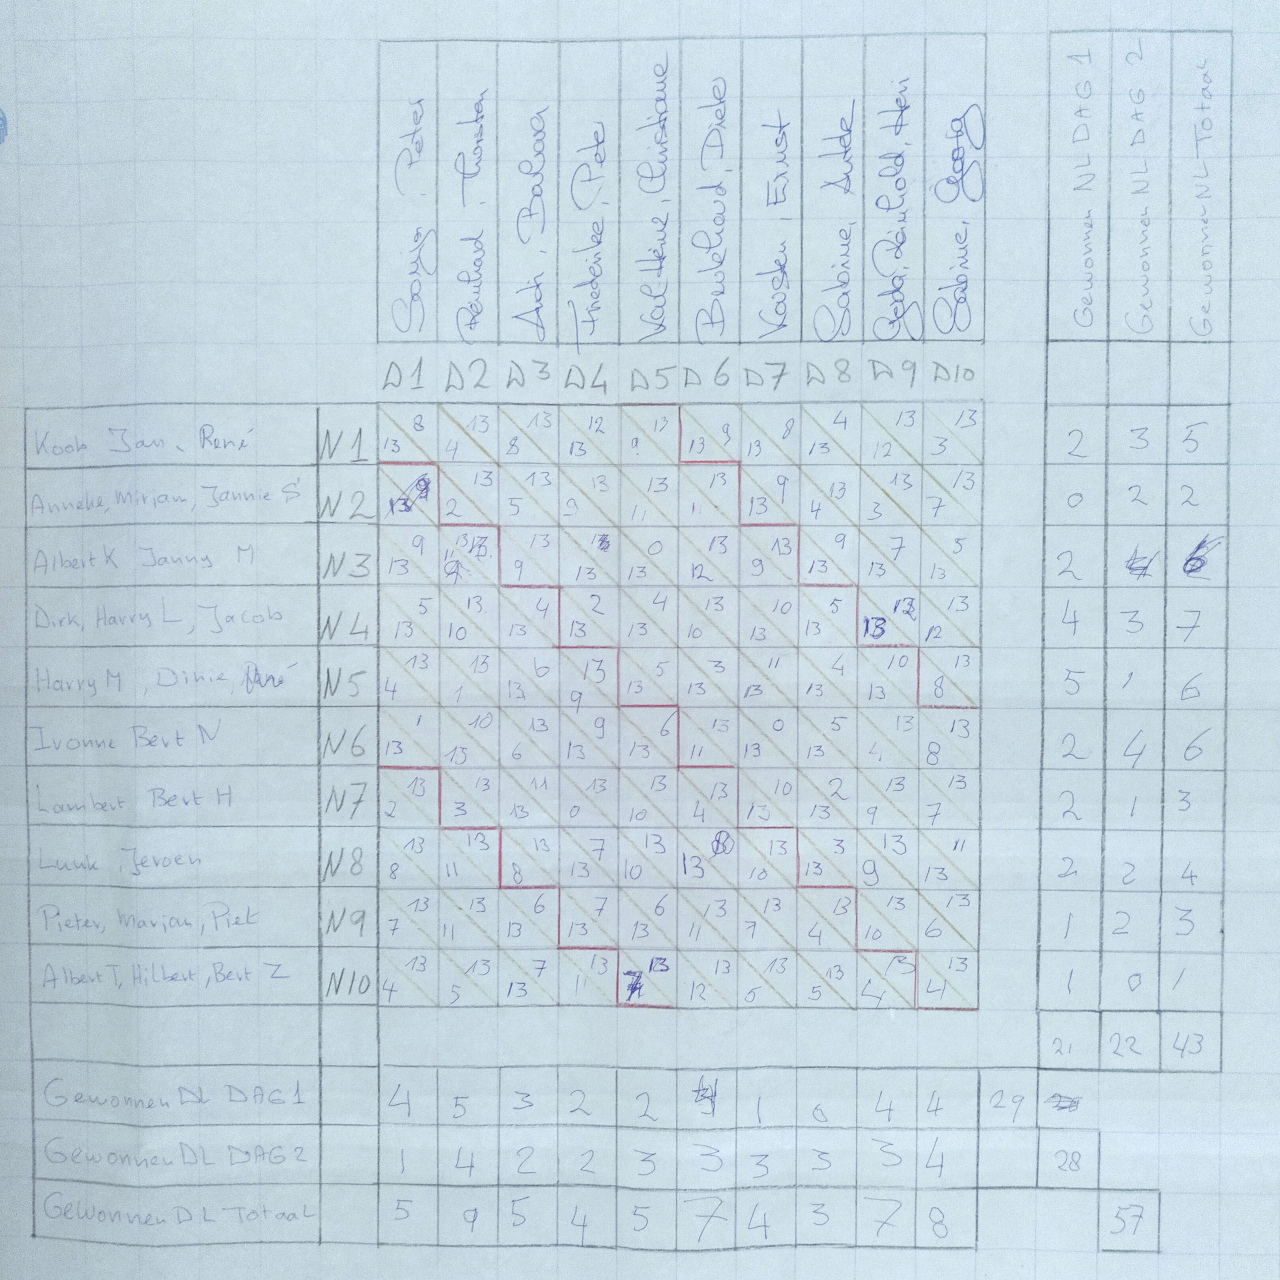 Peter
Thorsten
Friederike, Pete
Karl-Heinz, Christiane
Karsten, Ernst
Sabine,
Sabine, Georg
Gewonnen NL DAG 1
Gewonnen NL DAG 2
Gewonnen NL Totaal
D1 D2 D3 D4 D5 D6 D7 D8 D9 D10
Koob Jan, René N1 8 13 13 13 12 9 13 9 8 4 13 13
13 4 8 13 9 13 13 13 12 3
2 3 5
Anneke, Mirjam, Jannie S N2 9 13 13 13 13 13 9 13 13 13
13 2 5 9 11 11 13 4 3 7
0 2 2
Albert K Janny M N3 9 13 13 0 13 13 9 7 5
13 9 13 13 12 9 13 13 13
2 6
Dirk, Harry L, Jacob N4 5 13 4 2 4 13 10 5 12 13
13 10 13 13 13 10 13 13 13 12
4 3 7
Harry M, Dinie, René N5 13 13 6 13 5 3 11 4 10 13
4 1 13 9 13 13 13 13 13 8
5 1 6
Ivonne Bert N N6 1 10 13 9 6 13 0 5 13 13
13 13 6 13 13 11 13 13 4 8
2 4 6
Lambert Bert H N7 13 13 11 13 13 13 10 2 13 13
2 3 13 0 10 4 13 13 9 7
2 1 3
Luuk, Jeroen N8 13 13 13 7 13 8 13 3 13 11
8 11 8 13 10 13 10 13 9 13
2 2 4
Pieter, Marjan, Piet N9 13 13 6 7 6 13 13 13 13 13
7 11 13 13 13 11 7 4 10 6
1 2 3
Albert T, Hilbert, Bert Z N10 13 13 7 13 13 13 13 13 13 13
4 5 13 11 7 12 5 5 4 4
1 0 1
21 22 43
Gewonnen DL DAG 1 4 5 3 2 2 4 1 0 4 4 29
Gewonnen DL DAG 2 1 4 2 2 3 3 3 3 3 4 28
Gewonnen DL Totaal 5 9 5 4 5 7 4 3 7 8 57